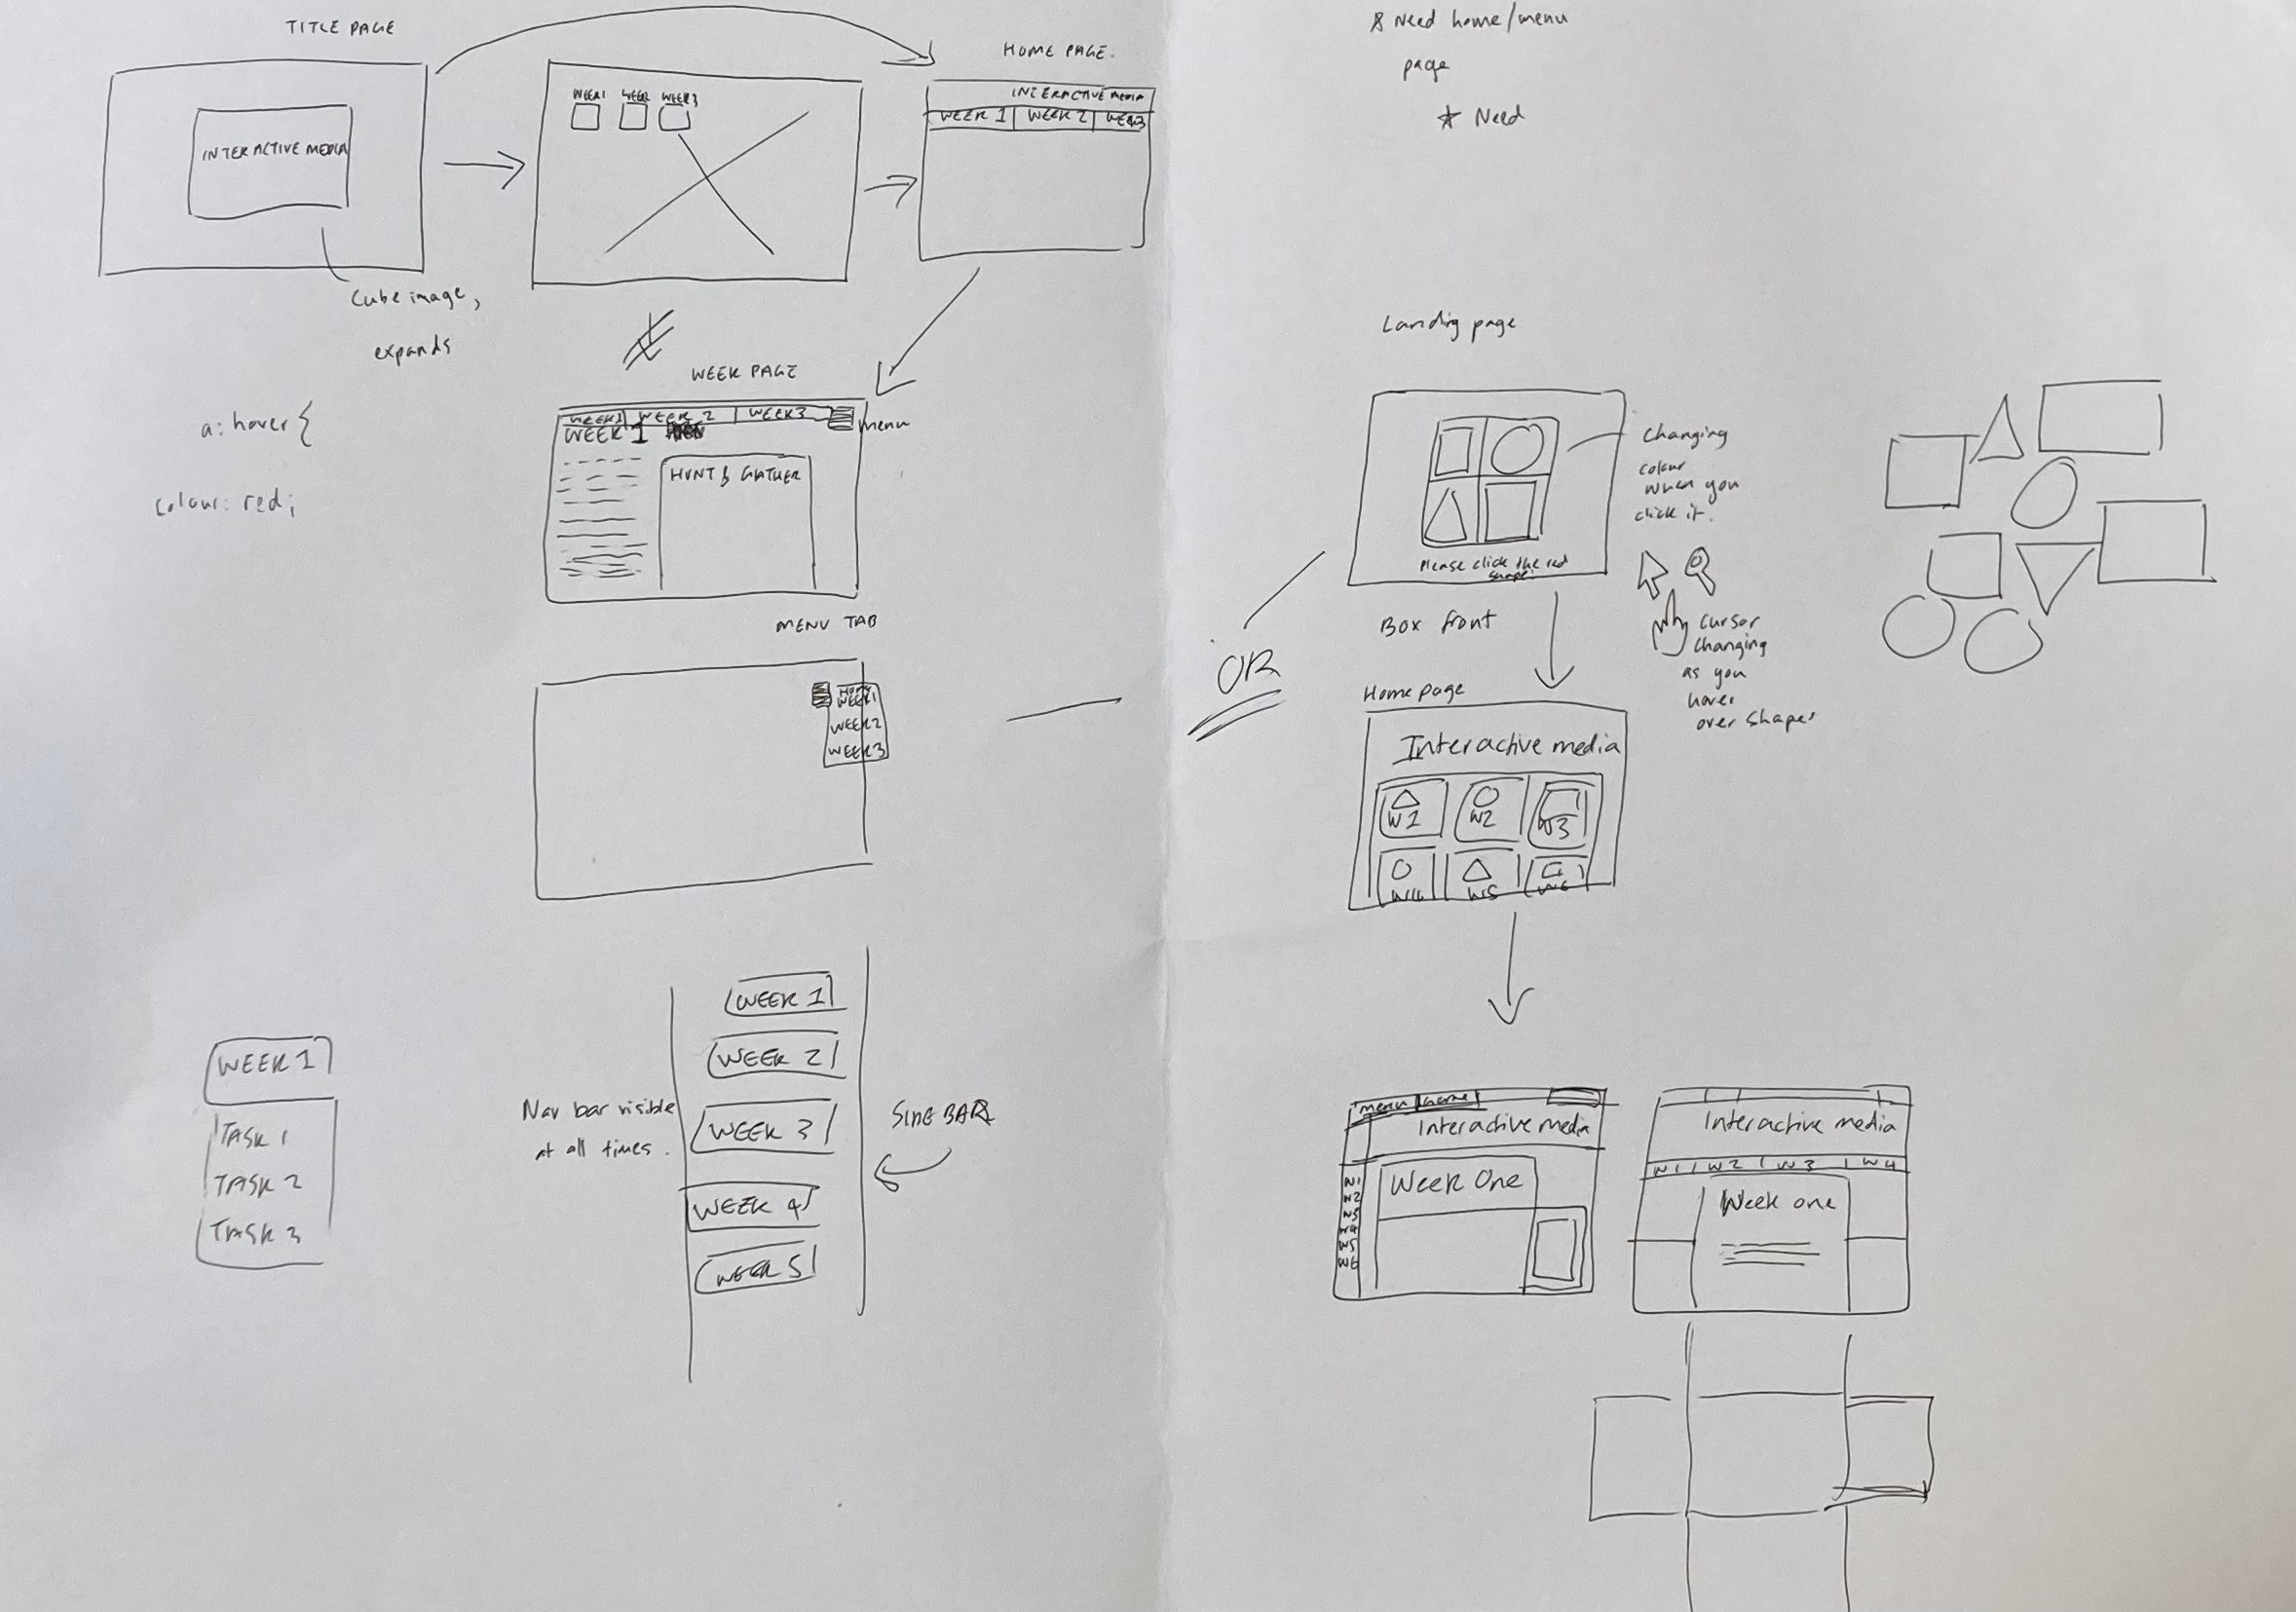 TITLE PAGE
INTERACTIVE MEDIA
Cube image,
expands
WEEK1 WEEK2 WEEK3
HOME PAGE.
INTERACTIVE MEDIA
WEEK 1 WEEK 2 WEEK3
a: hover {
colour: red;
WEEK PAGE
WEEK1 WEEK 2 WEEK3
menu
WEEK 1
HUNT & GATHER
MENU TAB
HOME
WEEK1
WEEK2
WEEK3
WEEK 1
TASK 1
TASK 2
TASK 3
Nav bar visible
at all times.
WEEK 1
WEEK 2
WEEK 3
WEEK 4
WEEK 5
SIDE BAR
OR
Need home/menu
page
* Need
Landing page
Changing
colour
when you
click it.
Please click the red
shape.
Box front
cursor
changing
as you
hover
over shapes
Home page
Interactive media
W1 W2 W3
W4 W5 W6
menu home
Interactive media
Week One
W1
W2
W3
W4
W5
W6
Interactive media
W1 W2 W3 W4
Week one